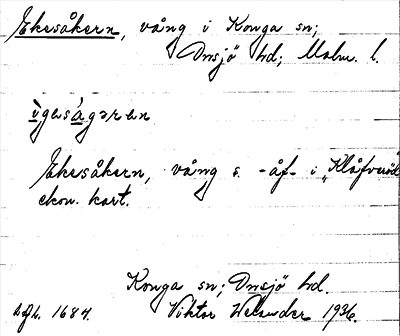 Ekesåkern, vång i Konga sn;
Onsjö hd; Malm. l.
ìgəsàgəren
Ekesåkern, vång s. -åf- i „Klåfveröd"
ekon. kart.
Konga sn; Onsjö hd.
1684. Viktor Welander 1936.